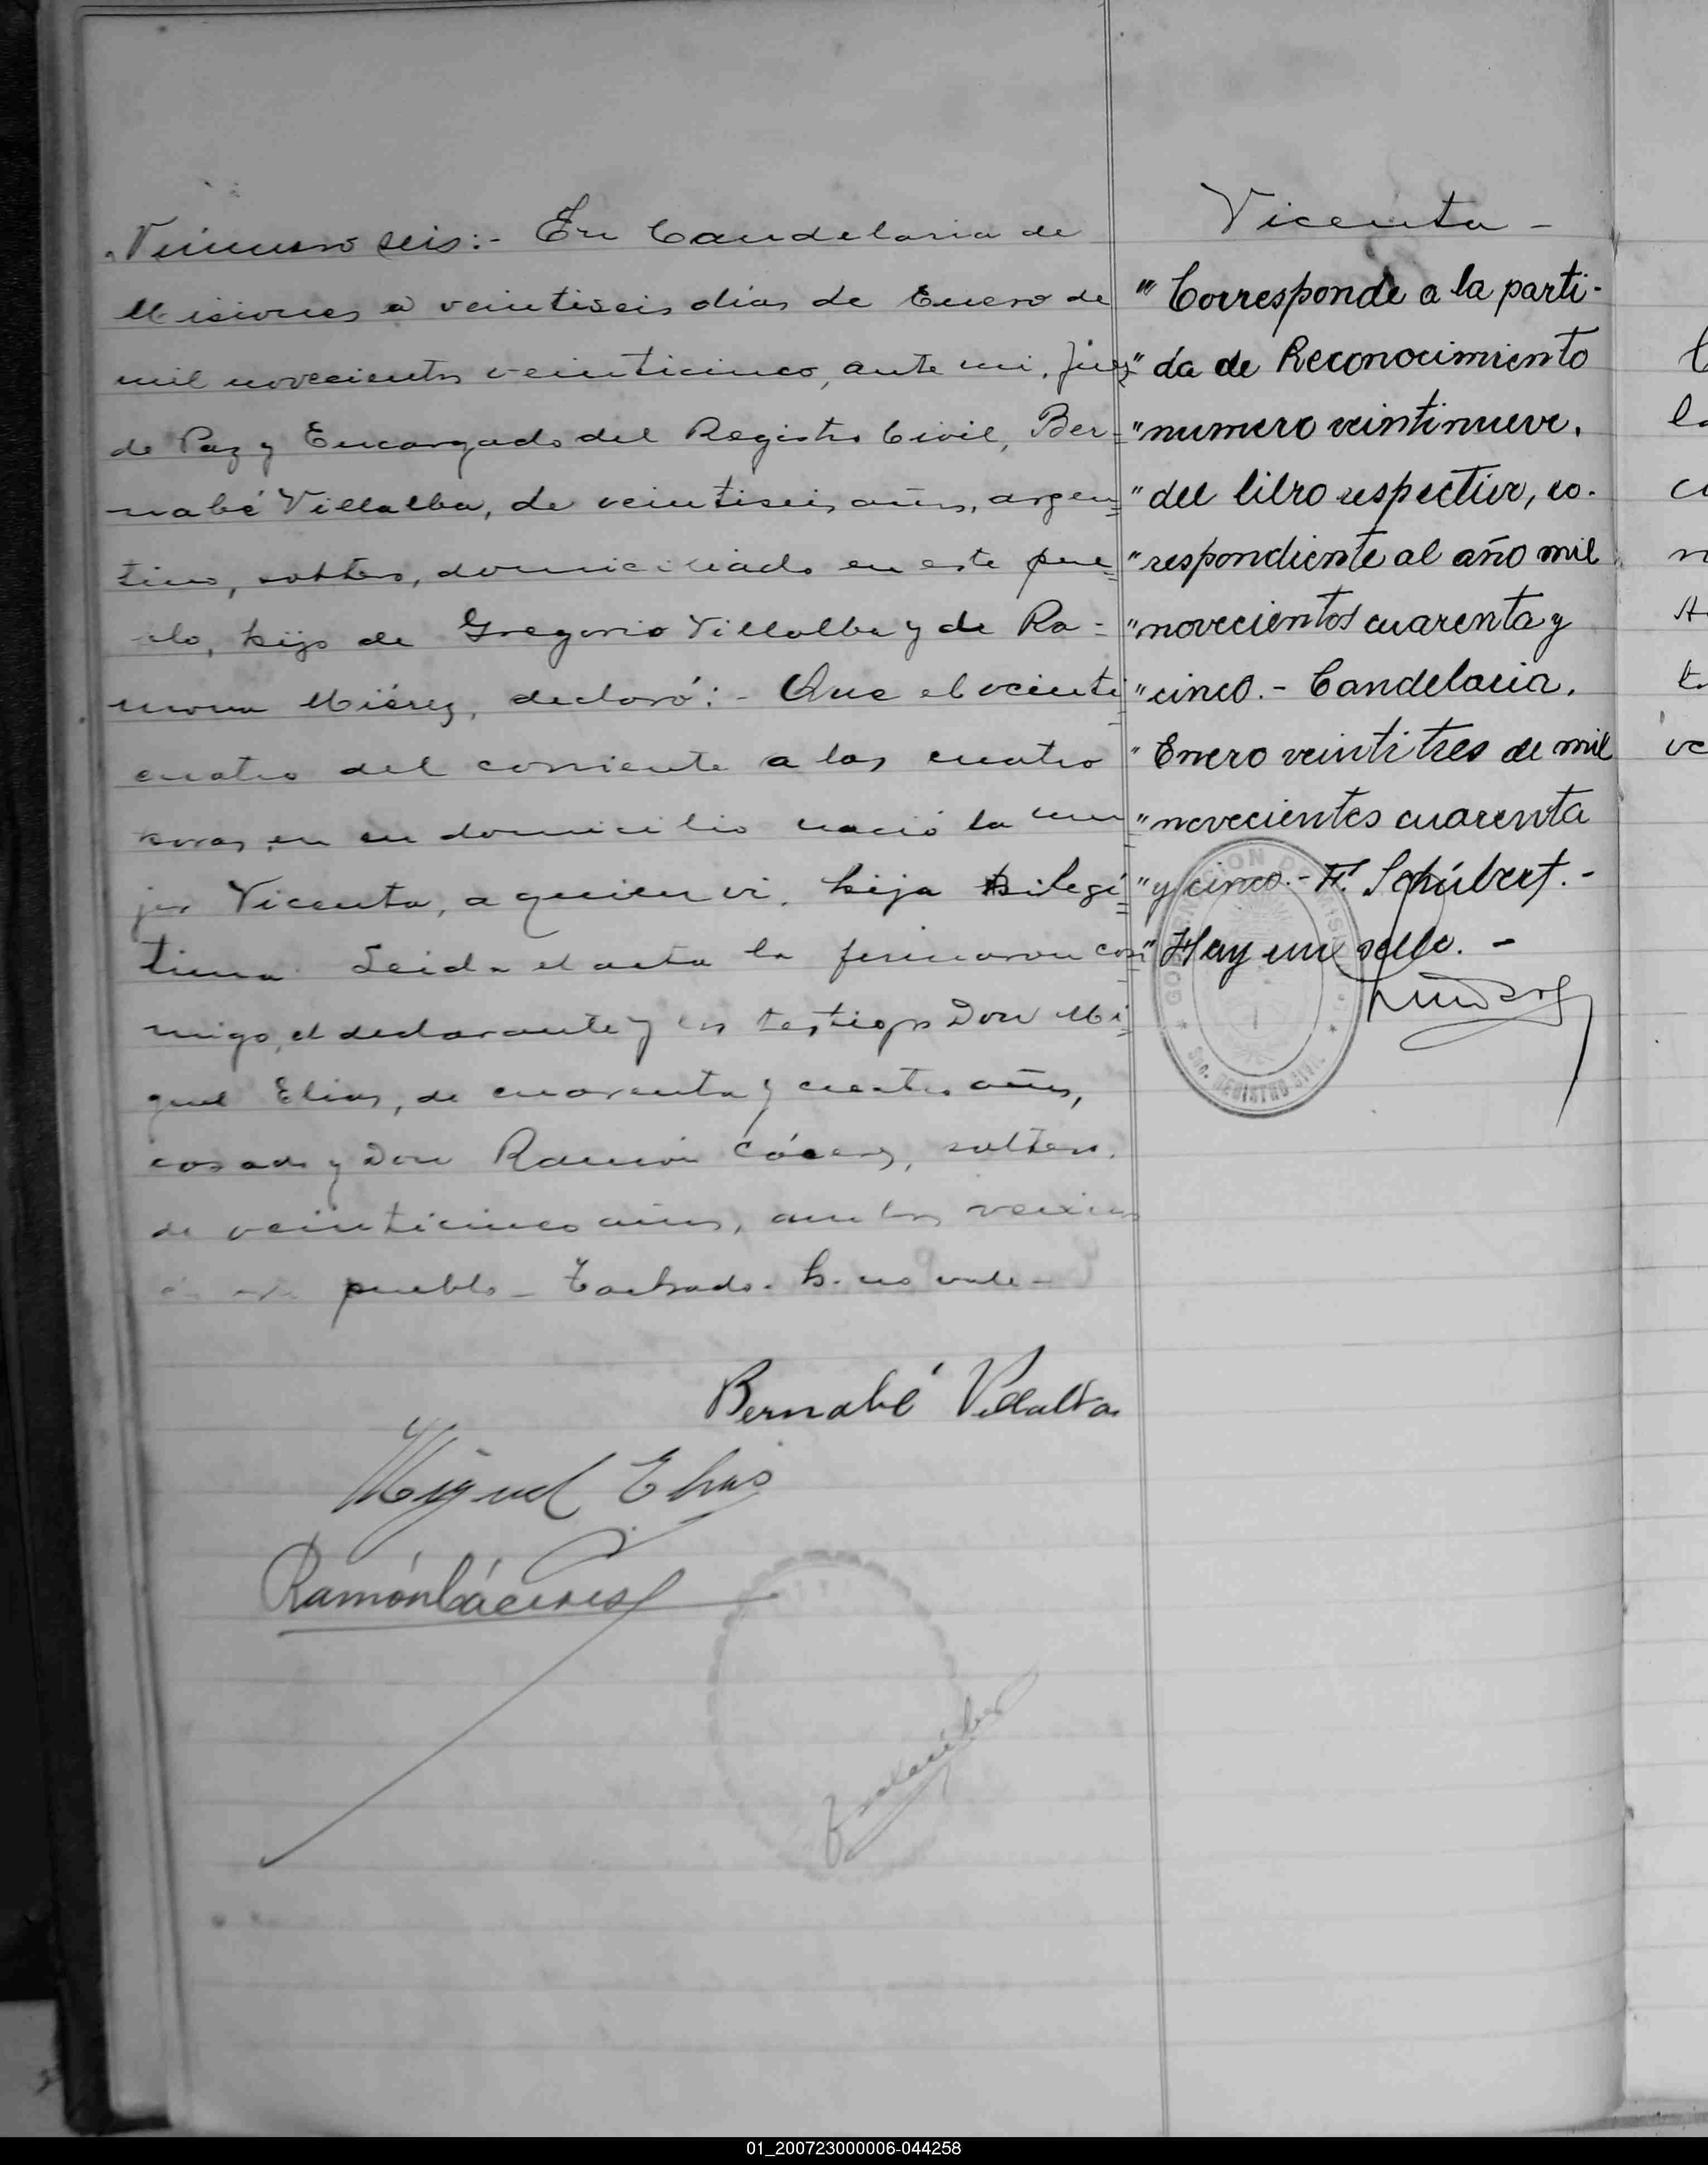 Número seis:- En Candelaria de
Misiones a veintiseis días de Enero de
mil novecientos veinticinco, ante mi, Juez
de Paz y Encargado del Registro Civil, Ber=
nabé Villalba, de veintiseis años, argen=
tino, soltero, domiciliado en este pue=
blo, hijo de Gregorio Villalba y de Ra=
mona Miérez, declaró:- Que el veinti
cuatro del corriente a las cuatro
horas en su domicilio nació la mu=
jer Vicenta, a quien vi, hija h ilegí=
tima. Leida el acta la firmaron con
migo, el declarante y los testigos Don Mi=
guel Elias, de cuarenta y cuatro años,
casado y Don Ramón Cáceres, soltero,
de veinticinco años, ambos vecinos
de este pueblo - Tachado. h. no vale -
Bernabé Villalba
Miguel Elias
Ramón Cáceres
Vicenta -
" Corresponde a la parti-
" da de Reconocimiento
" numero veintinueve,
" del libro respectivo, co-
" respondiente al año mil
" novecientos cuarenta y
" cinco.- Candelaria,
" Enero veintitres de mil
" novecientos cuarenta
" y cinco.- F. Schubert.-
" Hay un sello. -
GOBERNACION DE MISIONES
SEC. REGISTRO CIVIL
01_200723000006-044258